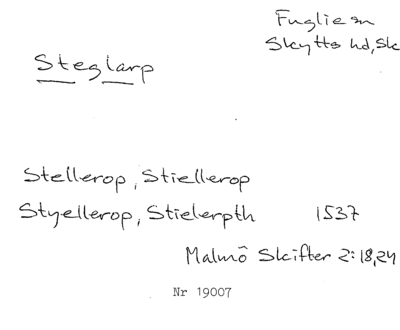 Fuglie sn
Skytts hd, Sk
Steglarp
Stellerop, Stiellerop
Styellerop, Stielerpth 1537
Malmö Skifter 2:18,24
Nr 19007